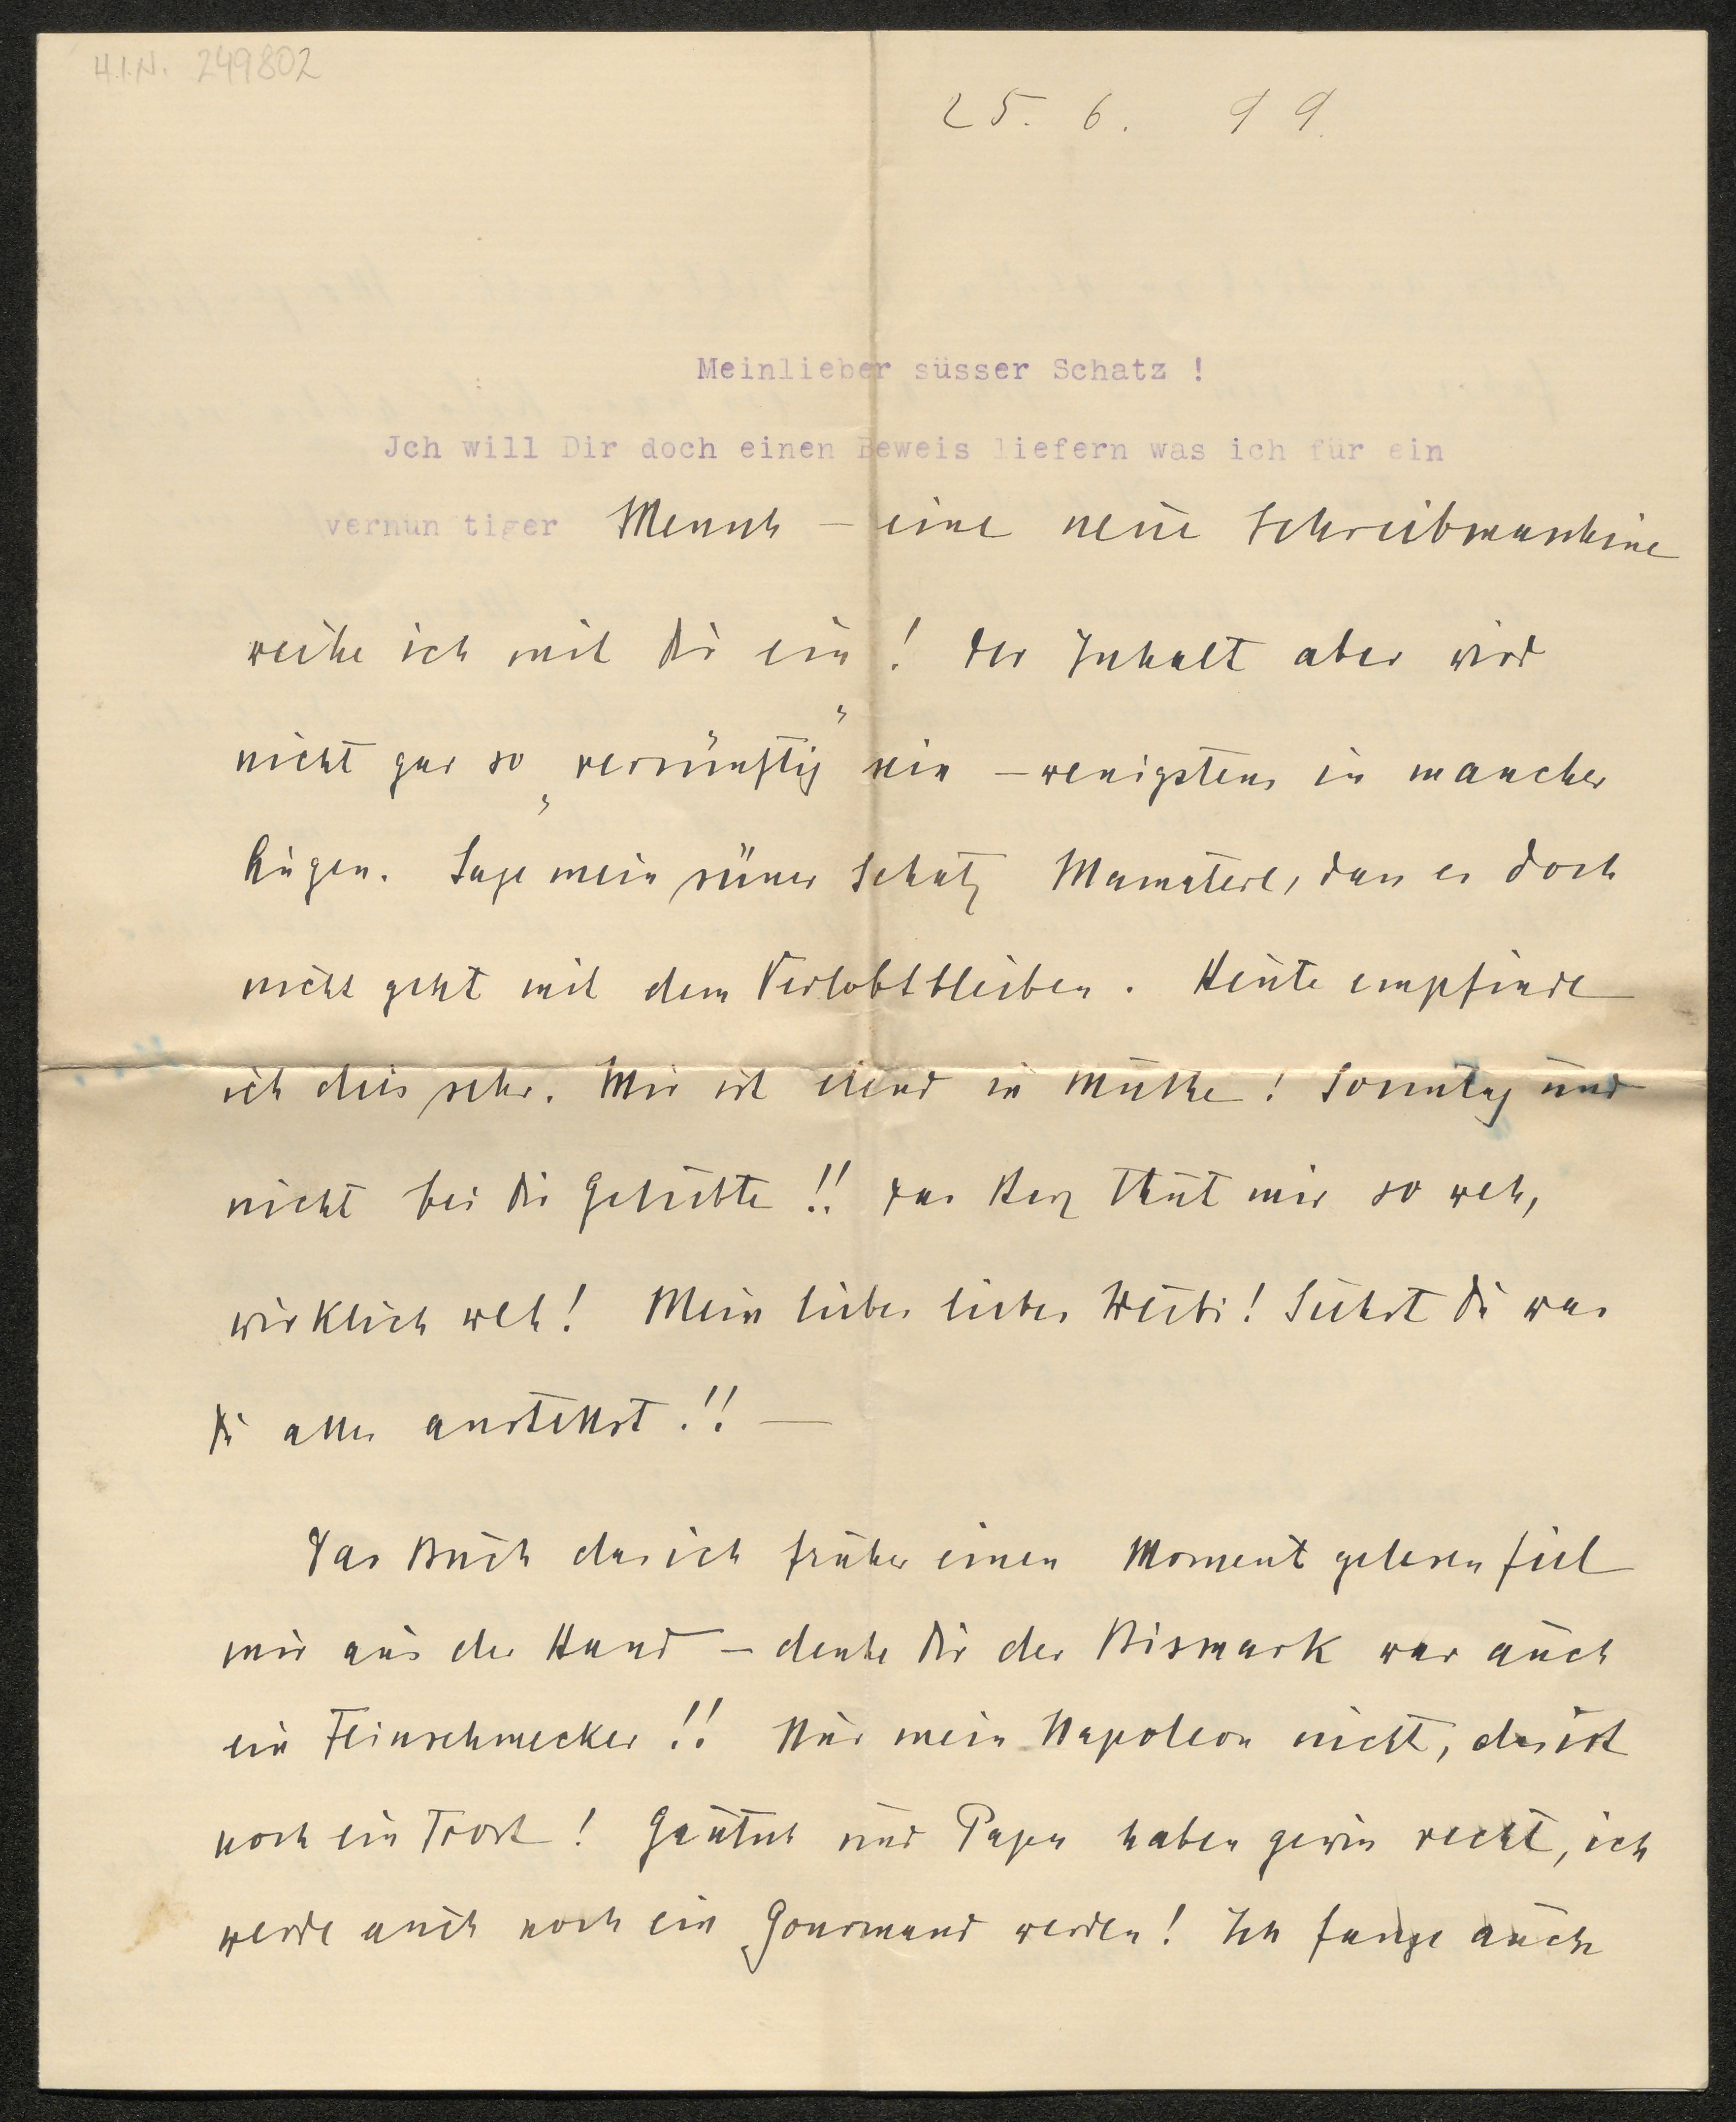 H.I.N. 249802
25. 6. 99.
Meinlieber süsser Schatz !
Jch will Dir doch einen Beweis liefern was ich für ein
vernün tiger Mensch – eine neue Schreibmaschine
weihe ich mit Dir ein! Der Inhalt aber wird
nicht gar so „vernünftig" sein – wenigstens in mancher
Augen. Sage mein süsser Schatz Mamaterl, dass es doch
nicht geht mit dem Verlobtbleiben. Heute empfinde
ich dies sehr. Mir ist elend zu Muthe! Sonntag und
nicht bei Dir Geliebte!! Das Herz thut mir so weh,
wirklich weh! Mein liebes liebes Weibi! Siehst Du was
Du alles anstellst!! —
Das Buch das ich früher einen Moment gelesen fiel
mir aus der Hand – denke Dir der Bismark war auch
ein Feinschmecker!! Nur mein Napoleon nicht, das ist
noch ein Trost! Gautsch und Papa haben gewiss recht, ich
werde auch noch ein Gourmand werden! Ich fange auch